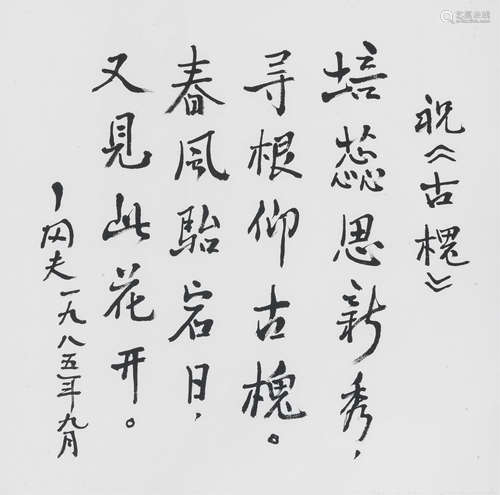 祝《古槐》
培蕊思新秀，
寻根仰古槐。
春风骀宕日，
又见此花开。
冈夫一九八五年九月